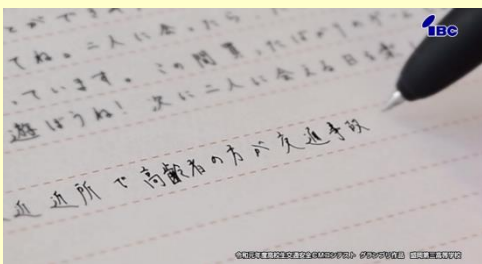 IBC
とができ
てね。二人に会ったら、
っています。この間買ったばかりのゲ
遊ぼうね! 次に二人に会える日を楽
近 近所で高齢者の方が交通事故
令和元年度高校生交通安全CMコンテスト グランプリ作品 盛岡第三高等学校